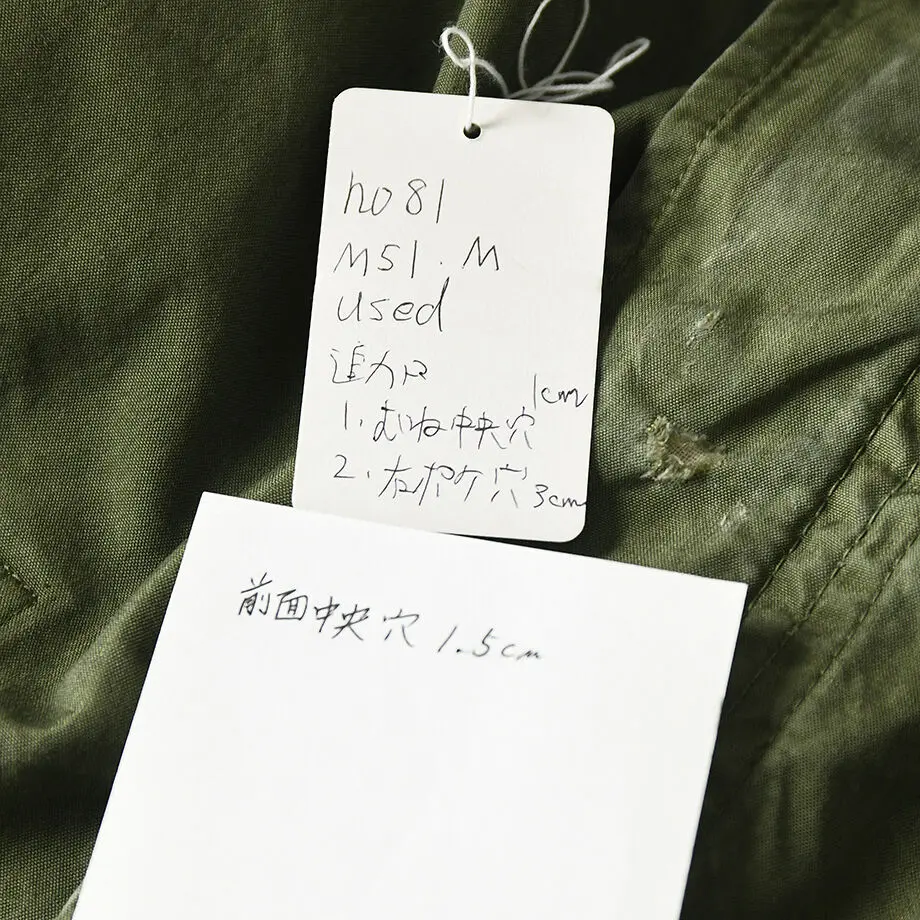 no 81
M51. M
used
追加
1. むね中央穴 1cm
2. 右ポケ穴 3cm
前面中央穴 1.5cm